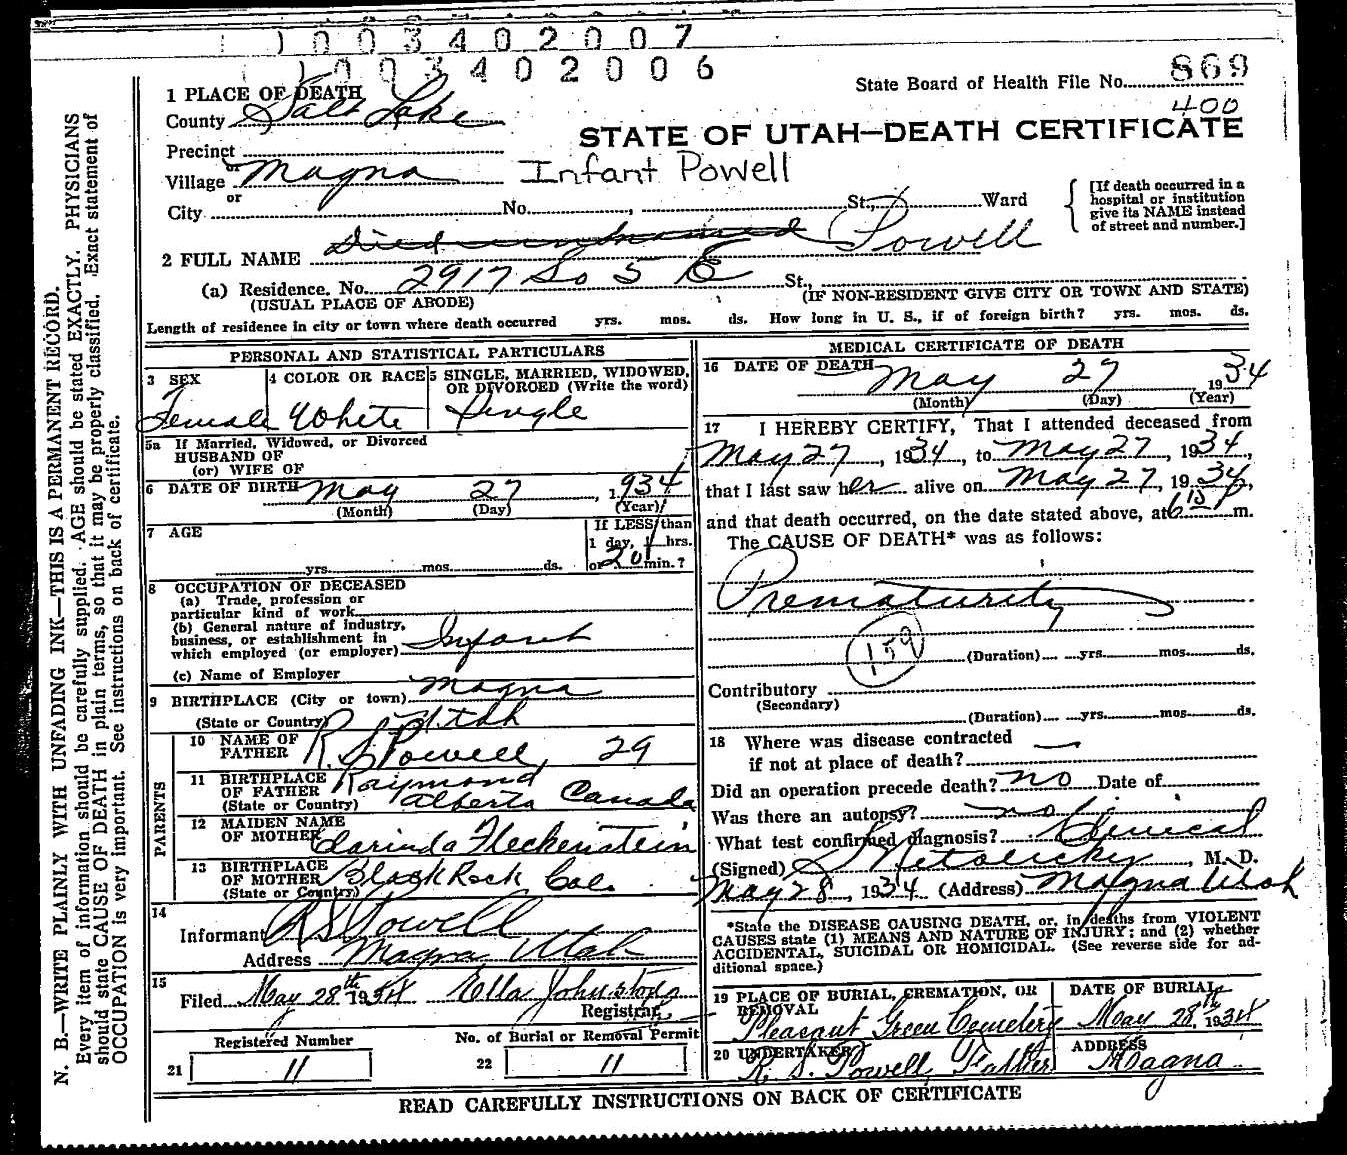 1003402007
1003402006
State Board of Health File No. 869
400
1 PLACE OF DEATH
County Salt Lake
STATE OF UTAH—DEATH CERTIFICATE
Precinct
or
Village Magna Infant Powell
or
City No. , St., Ward
[If death occurred in a hospital or institution give its NAME instead of street and number.]
2 FULL NAME Died unnamed Powell
(a) Residence. No. 2917 So 5 E St.,
(USUAL PLACE OF ABODE) (IF NON-RESIDENT GIVE CITY OR TOWN AND STATE)
Length of residence in city or town where death occurred yrs. mos. ds. How long in U. S., if of foreign birth? yrs. mos. ds.
PERSONAL AND STATISTICAL PARTICULARS
3 SEX 4 COLOR OR RACE 5 SINGLE, MARRIED, WIDOWED, OR DIVORCED (Write the word)
Female White Single
5a If Married, Widowed, or Divorced
HUSBAND OF
(or) WIFE OF
6 DATE OF BIRTH May 27, 1934
(Month) (Day) (Year)
7 AGE If LESS than
1 day, hrs.
yrs. mos. ds. or 20 min.?
8 OCCUPATION OF DECEASED
(a) Trade, profession or
particular kind of work
(b) General nature of industry,
business, or establishment in
which employed (or employer) Infant
(c) Name of Employer
9 BIRTHPLACE (City or town) Magna
(State or Country) Utah
PARENTS
10 NAME OF FATHER R. S. Powell, 29
11 BIRTHPLACE OF FATHER Raymond
(State or Country) Alberta Canada
12 MAIDEN NAME OF MOTHER Clarinda Fleckenstein
13 BIRTHPLACE OF MOTHER Black Rock Cal.
(State or Country)
14
Informant R S Powell
Address Magna, Utah
15
Filed May 28th 1934 Ella Johnstone
Registrar
Registered Number No. of Burial or Removal Permit
21 11 22 11
MEDICAL CERTIFICATE OF DEATH
16 DATE OF DEATH May 27 1934
(Month) (Day) (Year)
17 I HEREBY CERTIFY, That I attended deceased from
May 27, 1934, to May 27, 1934,
that I last saw her alive on May 27, 1934,
and that death occurred, on the date stated above, at 6 15 P m.
The CAUSE OF DEATH* was as follows:
Prematurity
159
(Duration) yrs. mos. ds.
Contributory
(Secondary)
(Duration) yrs. mos. ds.
18 Where was disease contracted
if not at place of death? —
Did an operation precede death? no Date of
Was there an autopsy? no
What test confirmed diagnosis? Clinical
(Signed) Netolicky, M. D.
May 28, 1934 (Address) Magna Utah
*State the DISEASE CAUSING DEATH, or, in deaths from VIOLENT
CAUSES state (1) MEANS AND NATURE OF INJURY; and (2) whether
ACCIDENTAL, SUICIDAL OR HOMICIDAL. (See reverse side for ad-
ditional space.)
19 PLACE OF BURIAL, CREMATION, OR REMOVAL DATE OF BURIAL
Pleasant Green Cemetery May 28th, 1934
20 UNDERTAKER ADDRESS
R. S. Powell, Father Magna
READ CAREFULLY INSTRUCTIONS ON BACK OF CERTIFICATE
N. B.—WRITE PLAINLY WITH UNFADING INK—THIS IS A PERMANENT RECORD.
Every item of information should be carefully supplied. AGE should be stated EXACTLY. PHYSICIANS
should state CAUSE OF DEATH in plain terms, so that it may be properly classified. Exact statement of
OCCUPATION is very important. See instructions on back of certificate.